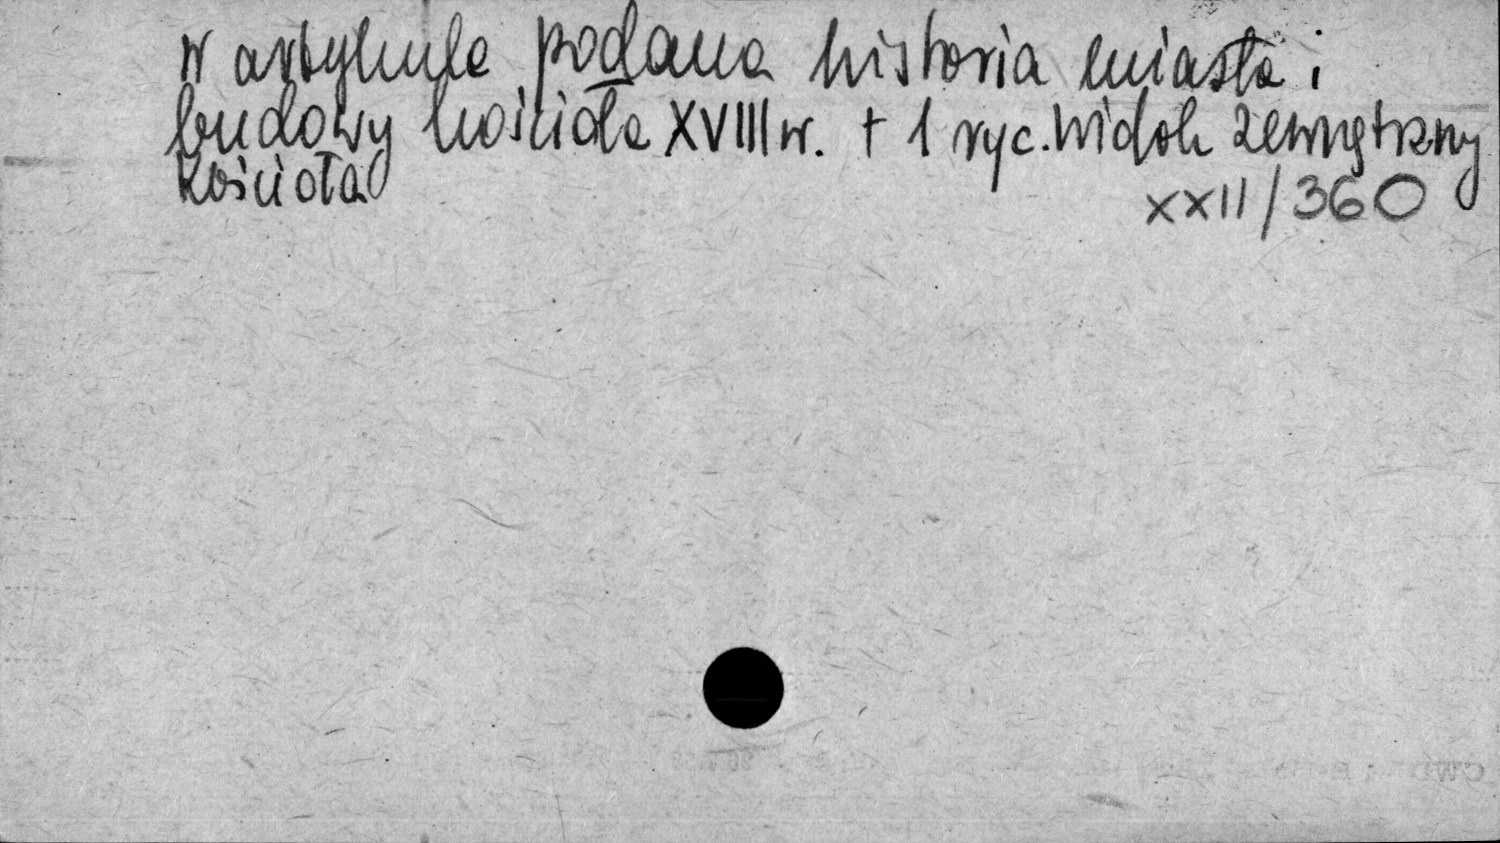 w artykule podana historia miasta i
budowy kościoła XVIII w. + 1 ryc. Widok zewnętrzny
kościoła
XXII/360